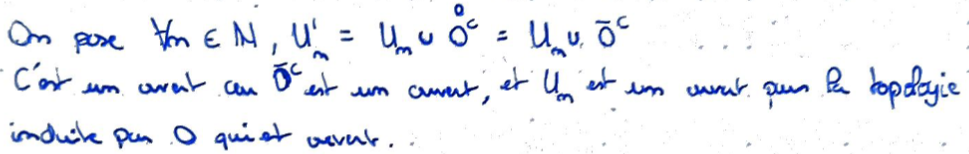 On pose ∀n ∈ ℕ, U'ₙ = Uₙ ∪ O̊ᶜ = Uₙ ∪ Ōᶜ
C'est un ouvert car Ōᶜ est un ouvert, et Uₙ est un ouvert pour la topologie
induite par O qui est ouvert.